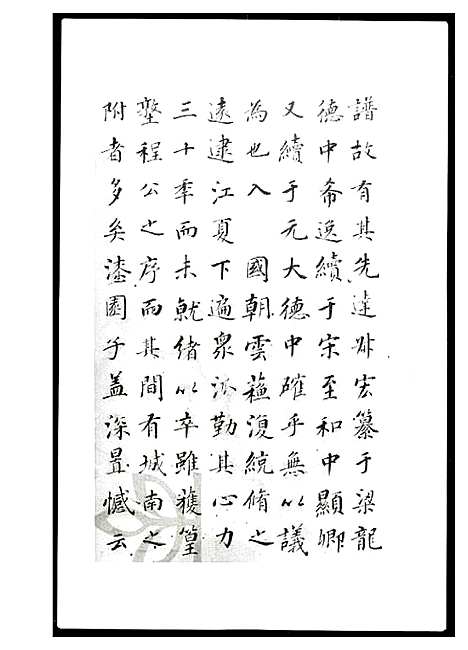 譜故有其先達叔宏纂于梁龍
德中希逸續于宋至和中顯卿
又續于元大德中確乎無以議
為也入 國朝雲蘓復統脩之
遠逮江夏下遍眾派勤其心力
三十年而未就緒以卒雖獲篁
墪程公之序而其間有城南之
附者多矣漆園子蓋深置憾云